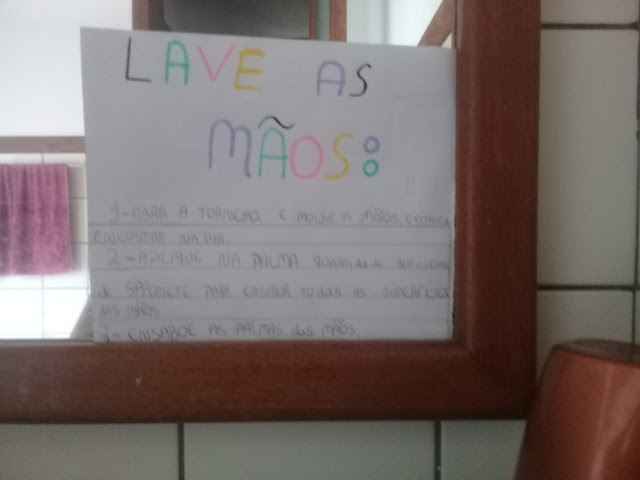 LAVE AS
MÃOS:
1-ABRA A TORNEIRA E MOLHE A MÃOS, EVITANDO
ENCOSTAR NA PIA.
2-APLIQUE NA PALMA QUANTIDADE SUFICIENTE
de SABONETE PARA ENSABOAR todas AS SUPERFÍCIES
das MÃOS
3-ENSABOE AS PALMAS das MÃOS.